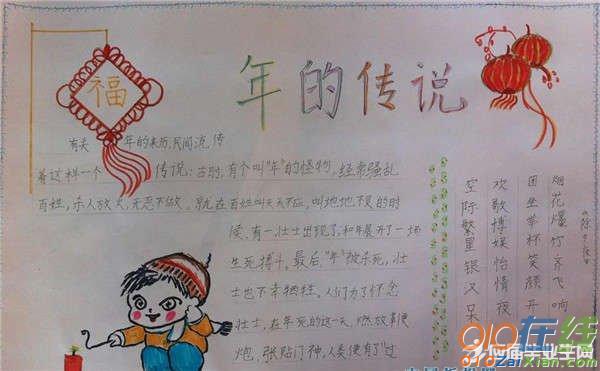 福
年的传说
有关 年的来历,民间流传
着这样一个 传说:古时,有个叫"年"的怪物,经常骚乱
百姓,杀人放火,无恶不做。就在百姓叫天天不应,叫地地不灵的时
候,有一壮士出现了,和年展开了一场
生死搏斗。最后,"年"被杀死,壮
士也不幸牺牲。人们为了怀念
壮士,在年死的这一天,燃放鞭
炮,张贴门神,人类便有了"过
烟花爆灯齐飞响
团坐举杯笑颜开
欢歌博娱怡情夜
空际繁星银汉呆
910在线
毕业生网